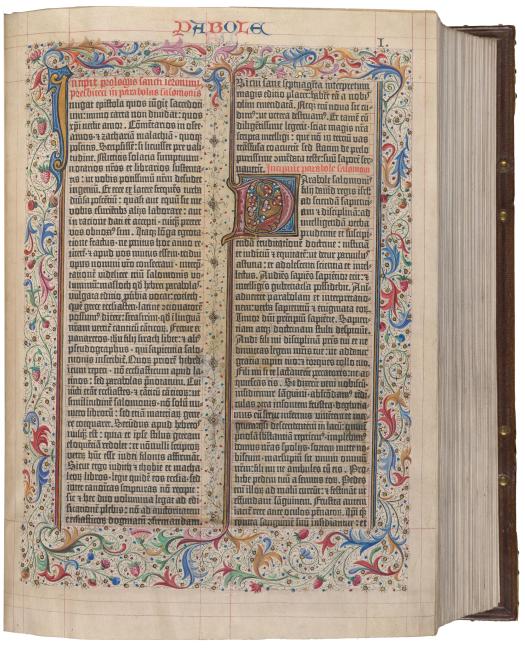 PABOLE
I.
Incipit prologus sancti ieronimi
presbiteri in parabolas salomonis
Iungat epistola quos iũgit sacerdoti
um: immo carta non diuidat: quos
xp̃i nectit amor. Cõmẽtarios in osee
amos ⁊ zachariã malachiã · quoqȝ
poscitis. Scripsissē: si licuisset pre vali
tudine. Mittitis solacia sumptuum ·
notarios nr̃os et librarios sustenta
tis: ut vobis potissimũ nr̃m desudet
ingeniũ. Et ecce ex latere frequẽs turba
diu̾sa poscẽtiũ: quasi aut equũ sit me
vobis esuriẽtibȝ alijs laborare: aut
in ratione dati et accepti · cuiqȝ preter
vos obnoxi⁹ sim. Itaqȝ lõga egrota
tione fractus · ne penitus hoc anno re
ticerẽ · ⁊ apud vos mutus essem · tridui
opus nomini vr̃o consecraui · interp̃
tationẽ videlicet triũ salomonis vo
luminũ: masloth qd̾ hebrei parabolas ·
vulgata editio ꝓuerbia vocat: coeleth ·
quẽ grece ecclesiasten · latine cõcionatorẽ
possum⁹ dicere: sirasirim · qd̾ ĩ linguã
nostram vertit̃ canticũ cãticoꝝ. Fertur et
panaretos · ihu filij sirach liber: ⁊ ali⁹
pseudographus · qui sapientia salo
monis inscribit̃. Quoꝝ priorẽ hebra
icum repperi · nõ ecclesiasticũ ut apud la
tinos: sed parabolas p̃notatum. Cui
iũcti erãt ecclesiastes · et canticũ cãticoꝝ: ut
similitudinẽ salomonis · nõ solũ nu
mero libroꝝ: sed etiã materiaꝝ gene
re coequaret. Secũdus apud hebreos
nusqȝ est: quia et ipse stilus grecam
eloquẽtiã redolet: et nõnulli scriptoꝝ
veteꝝ hũc esse iudei filonis affirmãt.
Sicut ergo iudith ⁊ thobie et macha
beoꝝ libros · legit quidẽ eos ecclesia · sed
inter canõicas scripturas nõ recipit:
sic ⁊ hec duo volumina legat ad edi
ficationẽ plebis: nõ ad auctoritatem
ecclesiasticoꝝ dogmatũ ꝯfirmandam.
Si cui sane septuaginta interpretum
magis editio placet: habet eã a nobis
olim emẽdatã. Neqȝ eñ noua sic cu
dim⁹: ut vetera destruam⁹. Et tamẽ cũ
diligẽtissime legerit · sciat magis nr̃a
scripta intelligi: que nõ in terciũ vas
trãsfusa coacuerit: sed statim de prelo
purissime ꝯmẽdata teste: suũ sapor̃ ser
uauerit. Incipiũt parabole salomonis
Parabole salomonis
filij dauid regis isrl̃:
ad sciendã sapienti
am ⁊ disciplinã: ad
intelligendã verba
prudentie et suscipi
endã eruditationẽ doctrine: iusticiã
et iudiciũ ⁊ equitatẽ: ut detur paruulis
astutia: et adolescenti scientia et intel
lectus. Audiẽs sapiẽs sapiẽtior erit: ⁊
intelligẽs gubernacla possidebit. Ani
aduertet parabolam et interpretatio
nem: verba sapientiũ ⁊ enigmata eoꝝ.
Timor dñi principiũ sapiẽtie. Sapien
tiam atqȝ doctrinam stulti despiciũt.
Audi fili mi disciplinã pr̃is tui et ne
dimittas legem mr̃is tue: ut addatur
gratia capiti tuo: ⁊ torques collo tuo.
Fili mi si te lactauerint pctõres: ne ac
quiescas eis. Si dixerit veni nobiscũ ·
insidiemur sãguini · abscõdam⁹ tẽdi
culas ꝯtra insontem frustra · deglutia
mus eũ sicut infernus viuentem · et in
tegrum · q̃si descendentem in lacũ: omnẽ
p̃ciosã substanciã repiemus · implebim⁹
domus nr̃as spolijs · sortem mitte no
biscum · marsupiũ sit unum omniũ
nr̃m: fili mi ne ambules cũ eis. Pro
hibe pedem tuũ a semitis eoꝝ. Pedes
eñ illoꝝ ad malũ currũt: ⁊ festinãt ut
effundant sãguinem. Frustra autem
iacit̃ rete ante oculos pẽnatoꝝ. Ip̃i qȝ
contra sanguinẽ suũ insidiantur: et